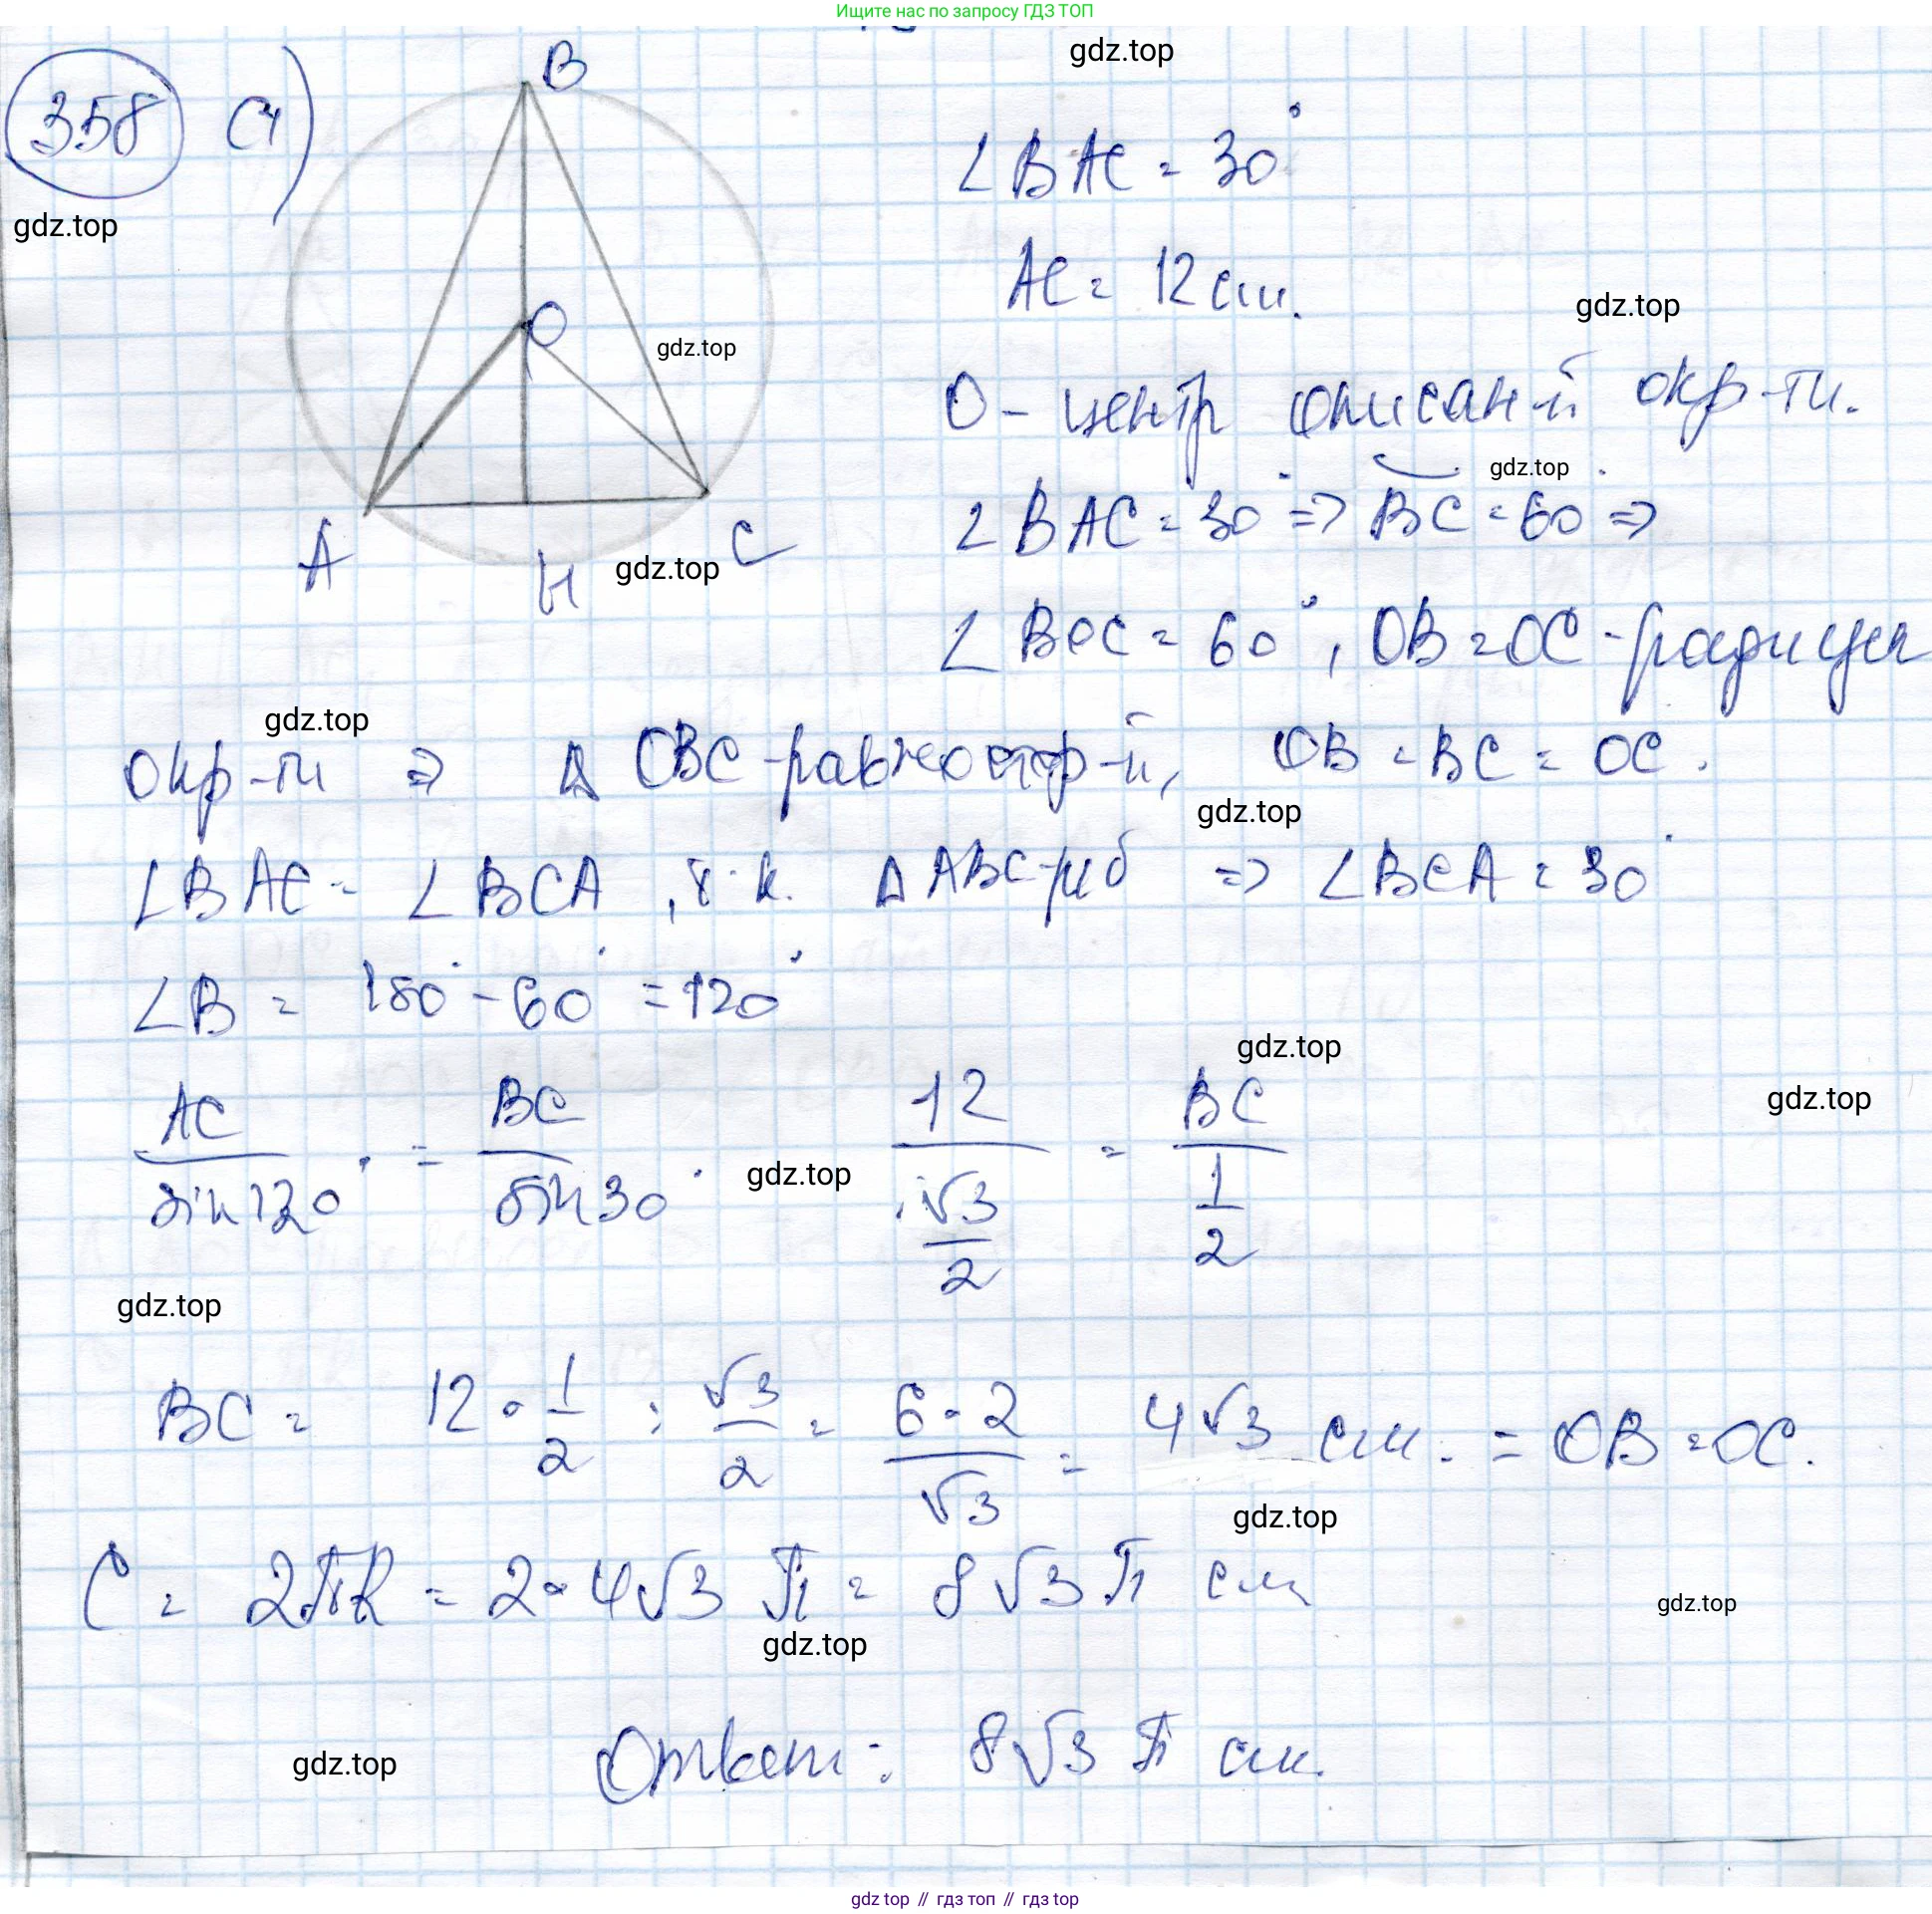 Ищите нас по запросу ГДЗ ТОП
gdz.top
358
B
∠BAC = 30°
gdz.top
AC = 12 см.
gdz.top
O
gdz.top
O - центр описан-й окр-ти.
gdz.top
∠BAC = 30° => BC = 60° =>
A
H
C
gdz.top
∠BOC = 60°, OB = OC - радиусы
gdz.top
окр-ти => Δ OBC - равностор-й, OB = BC = OC.
gdz.top
∠BAC = ∠BCA, т.к. Δ ABC - р/б => ∠BCA = 30°
∠B = 180° - 60° = 120°
gdz.top
gdz.top
AC/sin120° = BC/sin30° 12/(√3/2) = BC/(1/2)
gdz.top
gdz.top
BC = 12 · 1/2 : √3/2 = 6·2/√3 = 4√3 см. = OB = OC.
gdz.top
C = 2πR = 2·4√3 π = 8√3 π см
gdz.top
gdz.top
Ответ: 8√3 π см.
gdz.top
gdz.top // гдз топ // гдз top